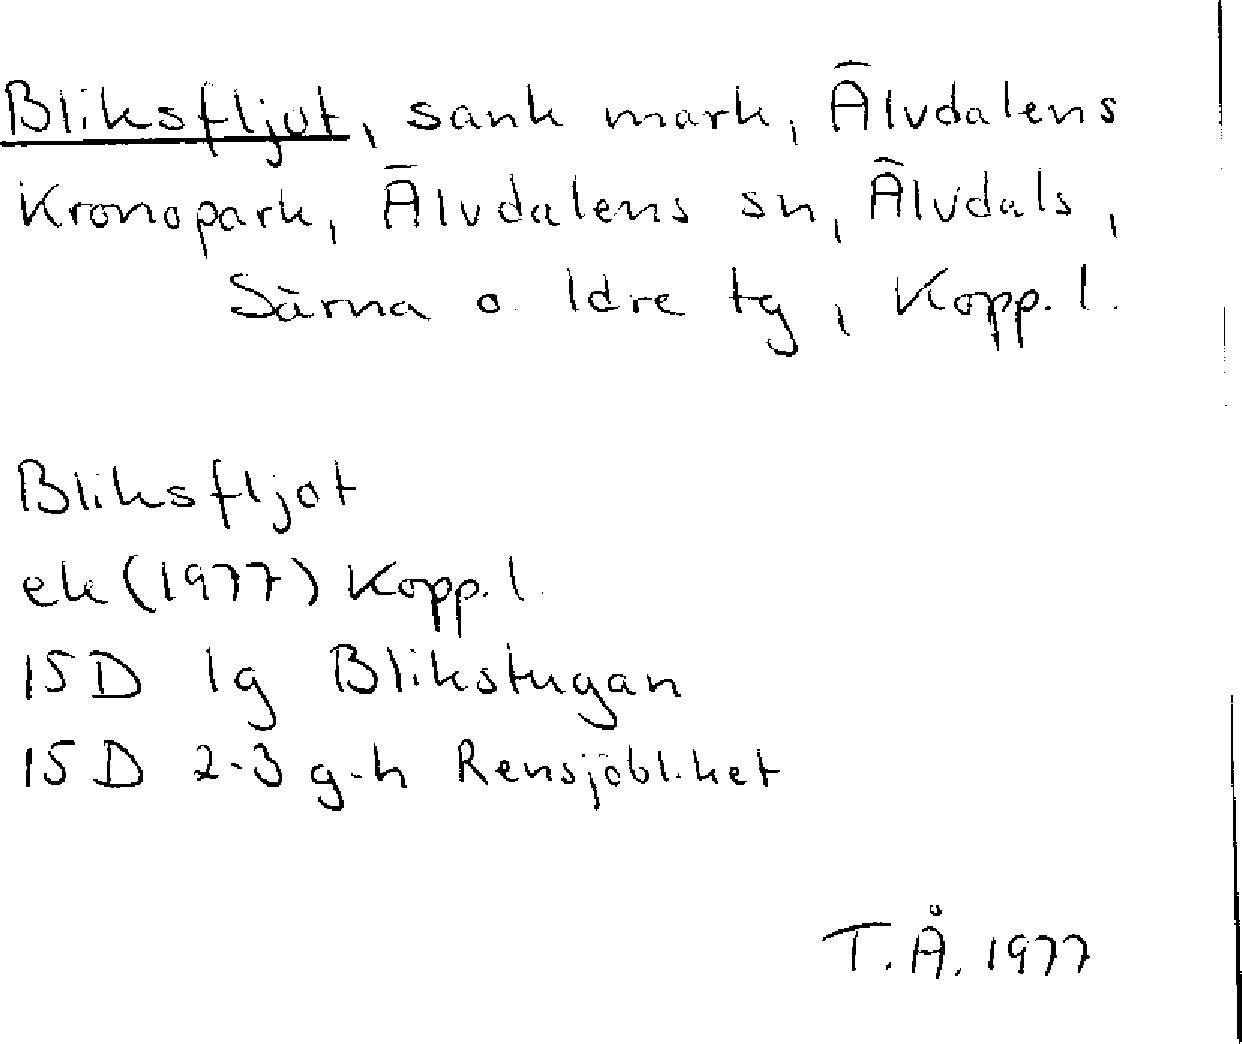 Bliksfljot, sank mark, Älvdalens
Kronopark, Älvdalens sn, Älvdals,
Särna o. Idre tg, Kopp. l.
Bliksfljot
ek (1977) Kopp. l.
15D 1g Blikstugan
15D 2-3 g-h Rensjöbliket
T.Å. 1977